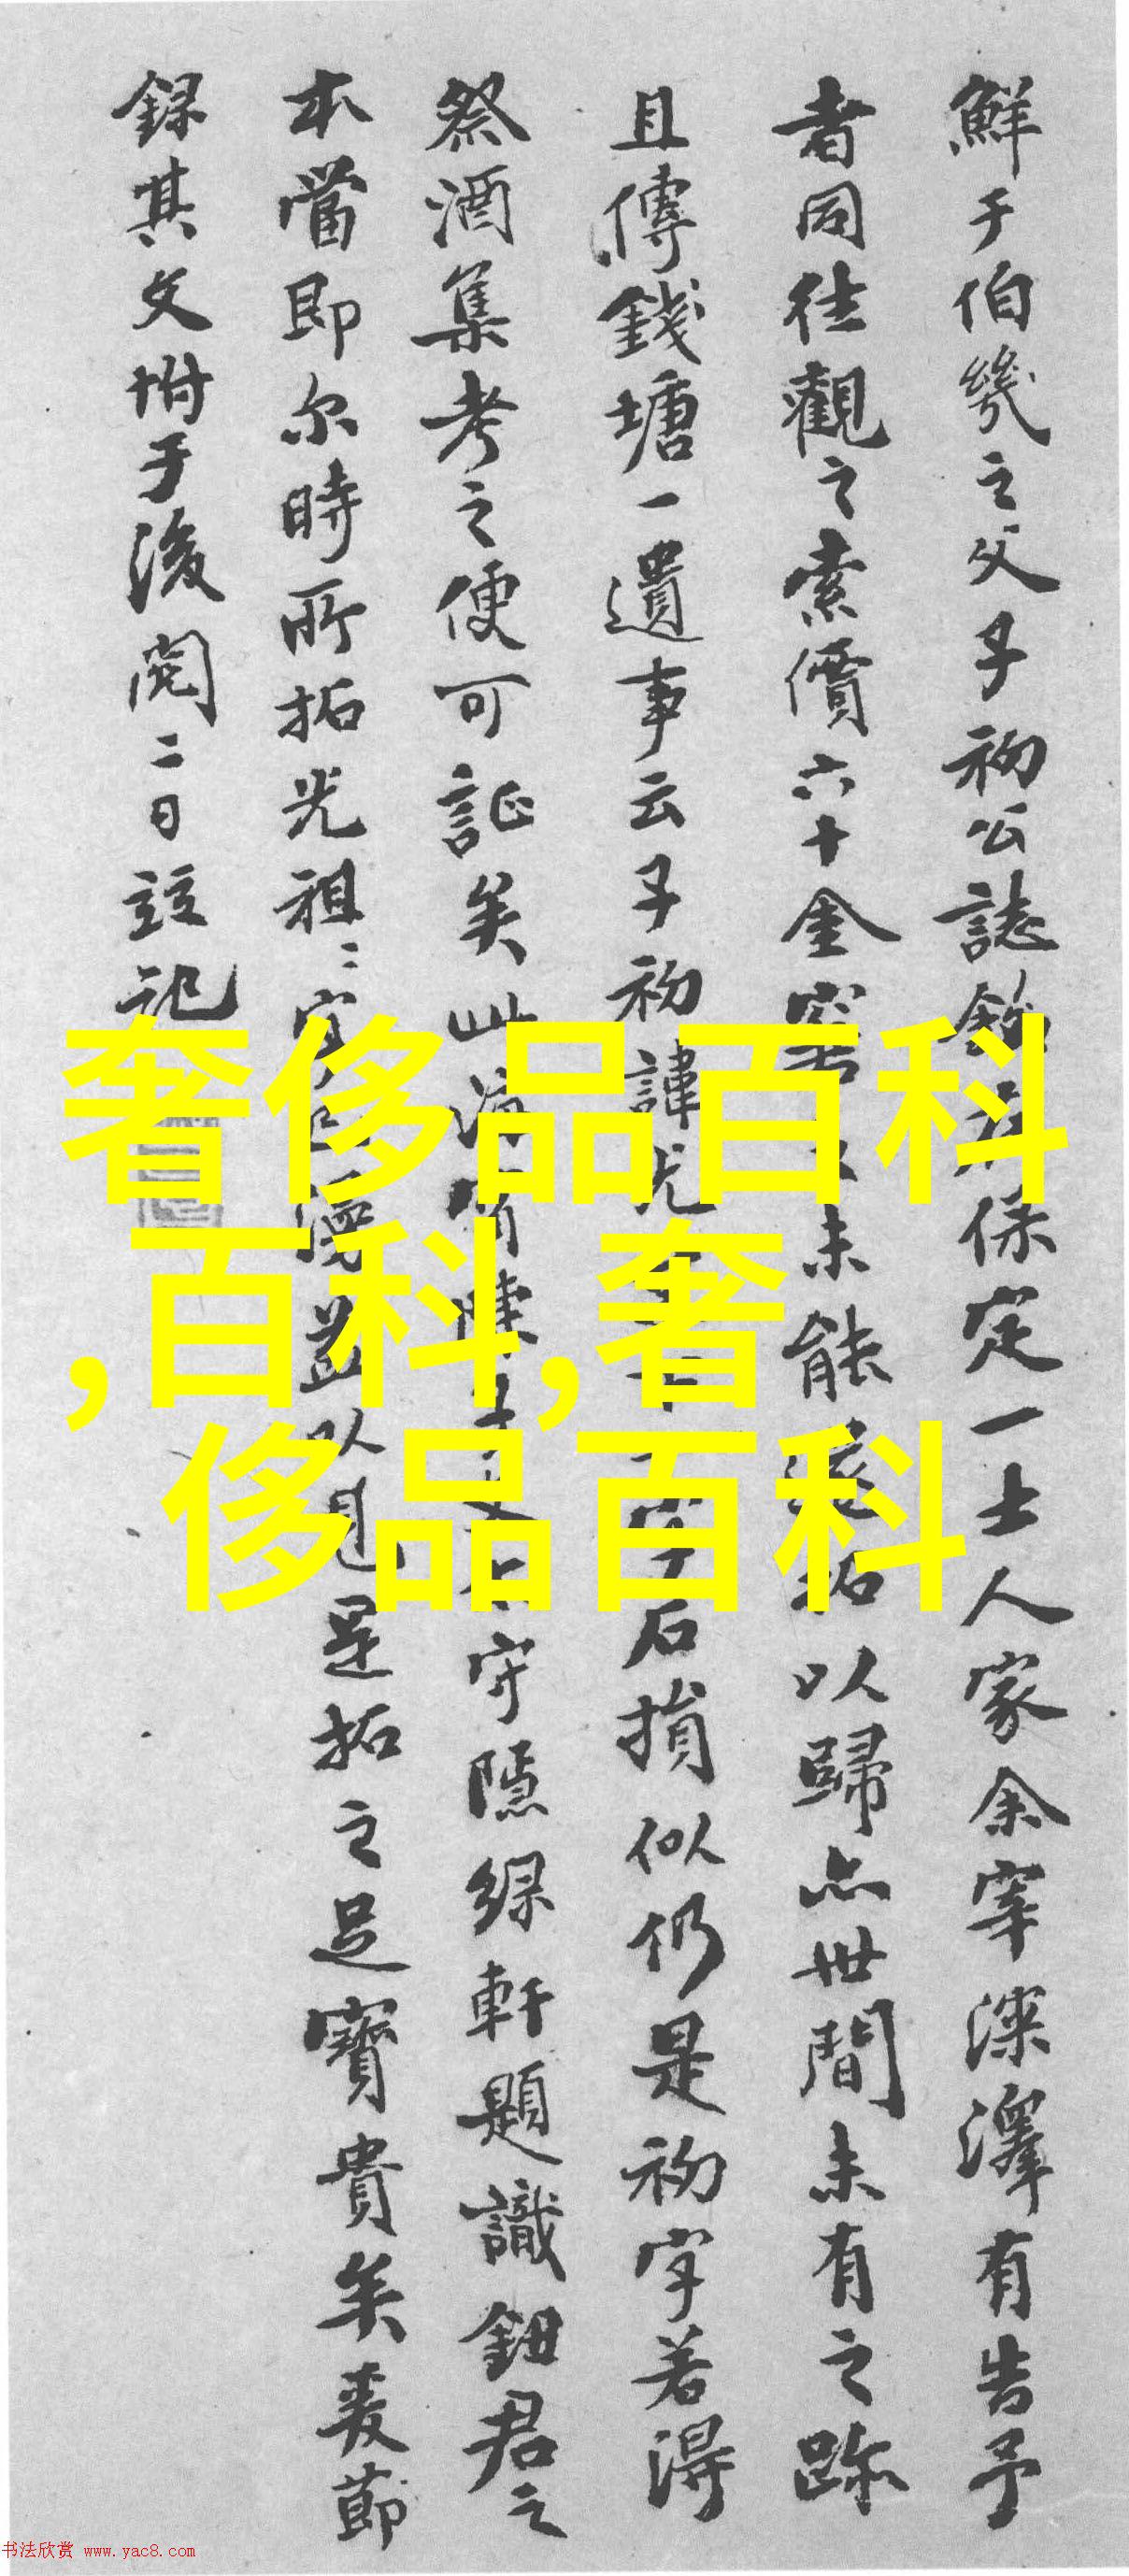 鮮于伯幾之父子初公誌銘在保定一士人家余宰深澤有告予
者同往觀之索價六十金未能拓以歸亦世間未有之跡
且傳錢塘一遺事云子初諱光石損似仍是初字若得
祭酒集考之便可証矣此守隱綠軒題識鈕君之
本當即尔時所拓光祖〻以見是拓之足寶貴矣爰節
錄其文坿于後閏二日記
奢侈品百科
,百科,奢
侈品百科
书法欣赏 www.yac8.com